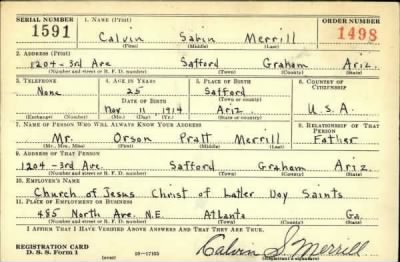 SERIAL NUMBER 1. NAME (Print) ORDER NUMBER
1591 Calvin Sabin Merrill 1498
(First) (Middle) (Last)
2. ADDRESS (Print)
1204-3rd Ave Safford Graham Ariz.
(Number and street or R. F. D. number) (Town) (County) (State)
3. TELEPHONE 4. AGE IN YEARS 5. PLACE OF BIRTH 6. COUNTRY OF CITIZENSHIP
None 25 Safford
DATE OF BIRTH (Town or county)
Nov 1914 Ariz. U.S.A.
(Exchange) (Number) (Mo.) (Day) (Yr.) (State or country)
7. NAME OF PERSON WHO WILL ALWAYS KNOW YOUR ADDRESS 8. RELATIONSHIP OF THAT PERSON
Mr. Orson Pratt Merrill Father
(Mr., Mrs., Miss) (First) (Middle) (Last)
9. ADDRESS OF THAT PERSON
1204-3rd Ave. Safford Graham Ariz.
(Number and street or R. F. D. number) (Town) (County) (State)
10. EMPLOYER'S NAME
Church of Jesus Christ of Latter Day Saints
11. PLACE OF EMPLOYMENT OR BUSINESS
485 North Ave. N.E. Atlanta Ga.
(Number and street or R. F. D. number) (Town) (County) (State)
I AFFIRM THAT I HAVE VERIFIED ABOVE ANSWERS AND THAT THEY ARE TRUE.
REGISTRATION CARD
D. S. S. Form 1 Calvin S. Merrill
(over)